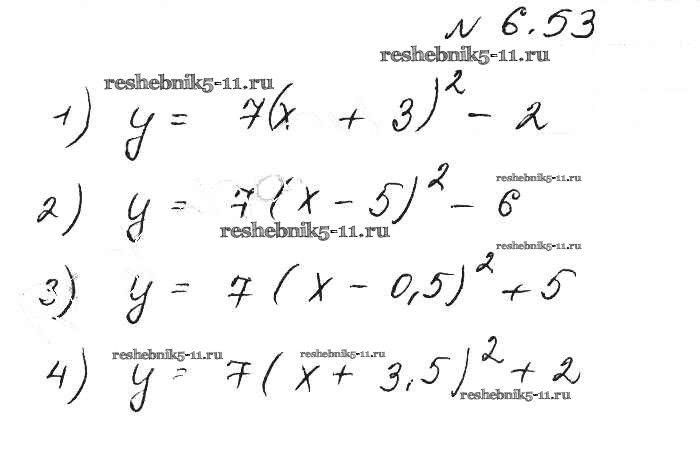 N 6.53
reshebnik5-11.ru
reshebnik5-11.ru
1) y = 7(x + 3)² - 2
reshebnik5-11.ru
2) y = 7(x - 5)² - 6
reshebnik5-11.ru
reshebnik5-11.ru
3) y = 7(x - 0,5)² + 5
reshebnik5-11.ru
reshebnik5-11.ru
4) y = 7(x + 3,5)² + 2
reshebnik5-11.ru